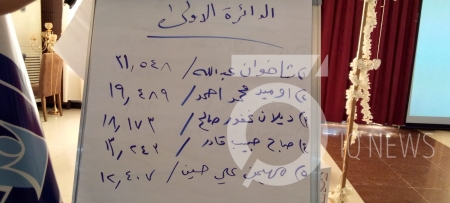 الدائرة الاولى
١) شاخوان عبدالله / ٢١,٥٤٨
٢) اوميد محمد احمد / ١٩,٤٨٩
٣) ديلان غفور صالح / ١٨,١٧٣
٤) صباح حبيب قادر / ١٣,٢٤٢
٥) مهيمن علي حسين / ١٢,٤٠٧
Q NEWS